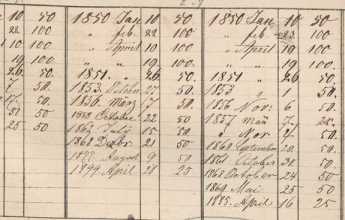 10 50 1850 Jan 10 50 1850 Jan 10 50
22 100 " feb. 22 100 " feb. 22. 100
10 100 " April 10 100 " April 19 100
19 100 " " 19 100 " " 19 100
26. 50. 1851. " 26 50. 1851 " 26 50.
50. 1853. 27 50. 1853 " 1 50.
17. 50. 1856. März 17 50. 1856 Nov: 6 50.
50 50 October 22 50 1857 mai 7.
25 50 Juli 15 50 " Nov 7 50.
1868 Decbr 21 50 September 20 50.
August 9 50 October 50.
1899. April 28 25 1868 October 24 50
1869 Mai 25 50
1885. April 16 25